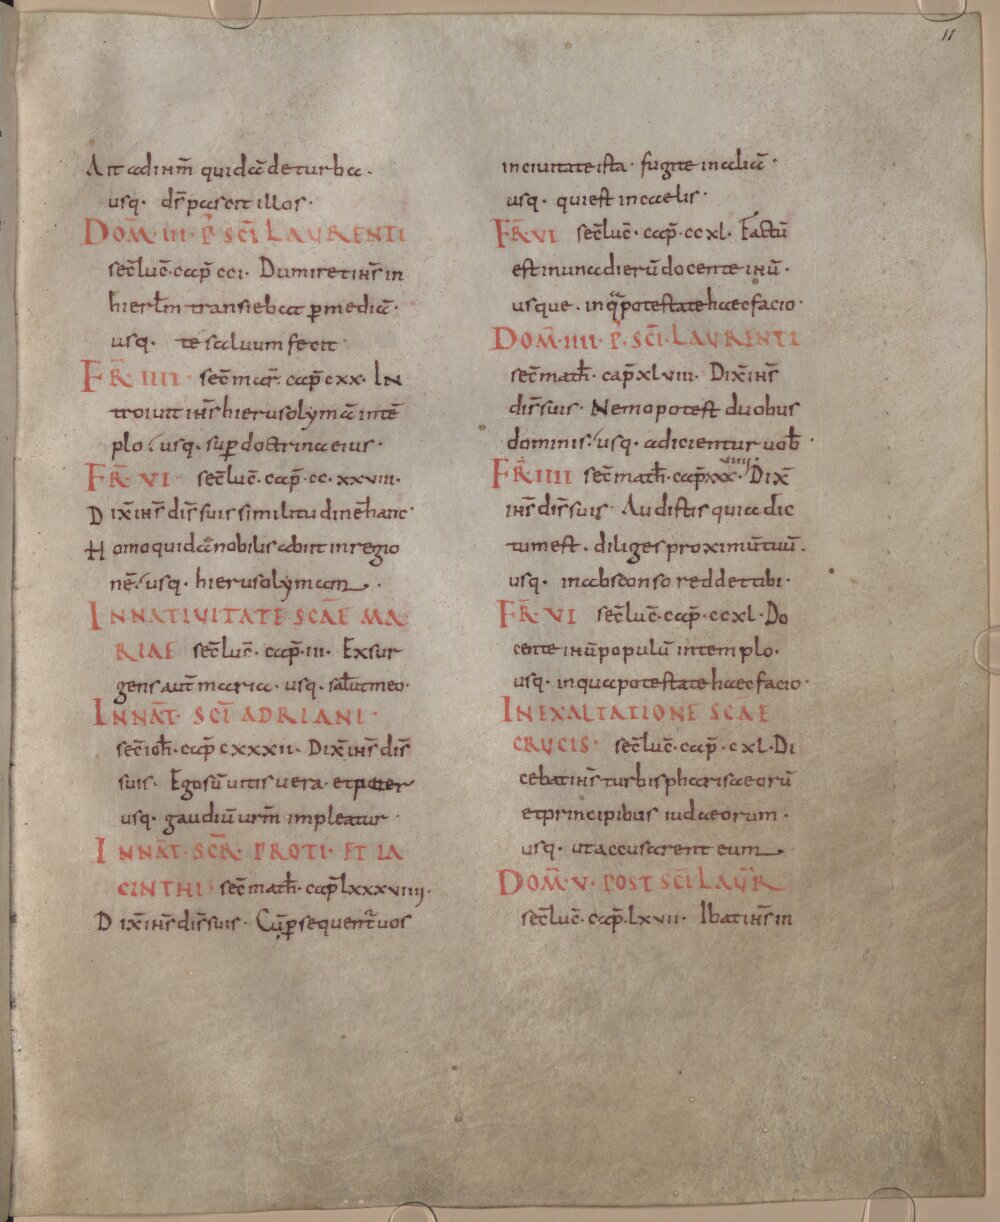 11
Ait ad ihm̄ quidā de turba.
usq. dr̄ pascit illos.
DOM̄. III. P̄. SC̄I LAURENTI
sec̄ luc̄. cap̄ cci. Dum iret ihs̄ in
hierłm transiebat ꝑ mediā.
usq. te salvum fecit
FR̄. IIII. sec̄ mar̄. cap̄ cxx. In
troivit ihs̄ hierusolymā in tē
plo. usq. suꝑ doctrina eius.
FR̄. VI. sec̄ luc̄. cap̄. cc. xxviii.
Dix̄ ihs̄ dis̄ suis similitudinē hanc.
Homo quidā nobilis abiit in regio
nē. usq. hierusolymam.
IN NATIVITATE SC̄AE MA
RIAE sec̄ luc̄. cap̄. iii. Exsur
gens aut̄ maria. usq. salut̄ meo.
IN NAT̄. SC̄I ADRIANI.
sec̄ ioh̄. cap̄ cxxxii. Dix̄ ihs̄ dis̄
suis. Ego sū vitis vera. et pater
usq. gaudiū urm̄ impleatur.
IN NAT̄. SC̄R̄. PROTI. ET IA
CINTHI. sec̄ math̄. cap̄ lxxxviiii.
Dix̄ ihs̄ dis̄ suis. Cū ꝑsequent̄ vos
in civitate ista. fugite in aliā.
usq. qui est in caelis.
FR̄. VI sec̄ luc̄. cap̄. ccxl. Factū
est in una dierū docente ihū.
usque. in qᵃ potestate haec facio.
DOM̄. IIII. P̄. SC̄I. LAURENTI
sec̄ math̄. cap̄ xlviii. Dix̄ ihs̄
dis̄ suis. Nemo potest duobus
dominis. usq. adicientur vob̄.
FR̄. IIII sec̄ math̄. cap̄ xxx. viiii. Dix̄
ihs̄ dis̄ suis. Audistis quia dic
tum est. diliges proximū tuū.
usq. in absconso reddet tibi.
FR̄. VI sec̄ luc̄. cap̄. ccxl. Do
cente ihū populū in templo.
usq. in qua potestate haec facio.
IN EXALTATIONE SC̄AE
CRUCIS. sec̄ luc̄. cap̄. cxl. Di
cebat ihs̄ turbis pharisaeorū
et principibus iudaeorum.
usq. ut accusarent eum.
DOM̄. V. POST SC̄I LAUR̄
sec̄ luc̄. cap̄. lxvii. Ibat ihs̄ in